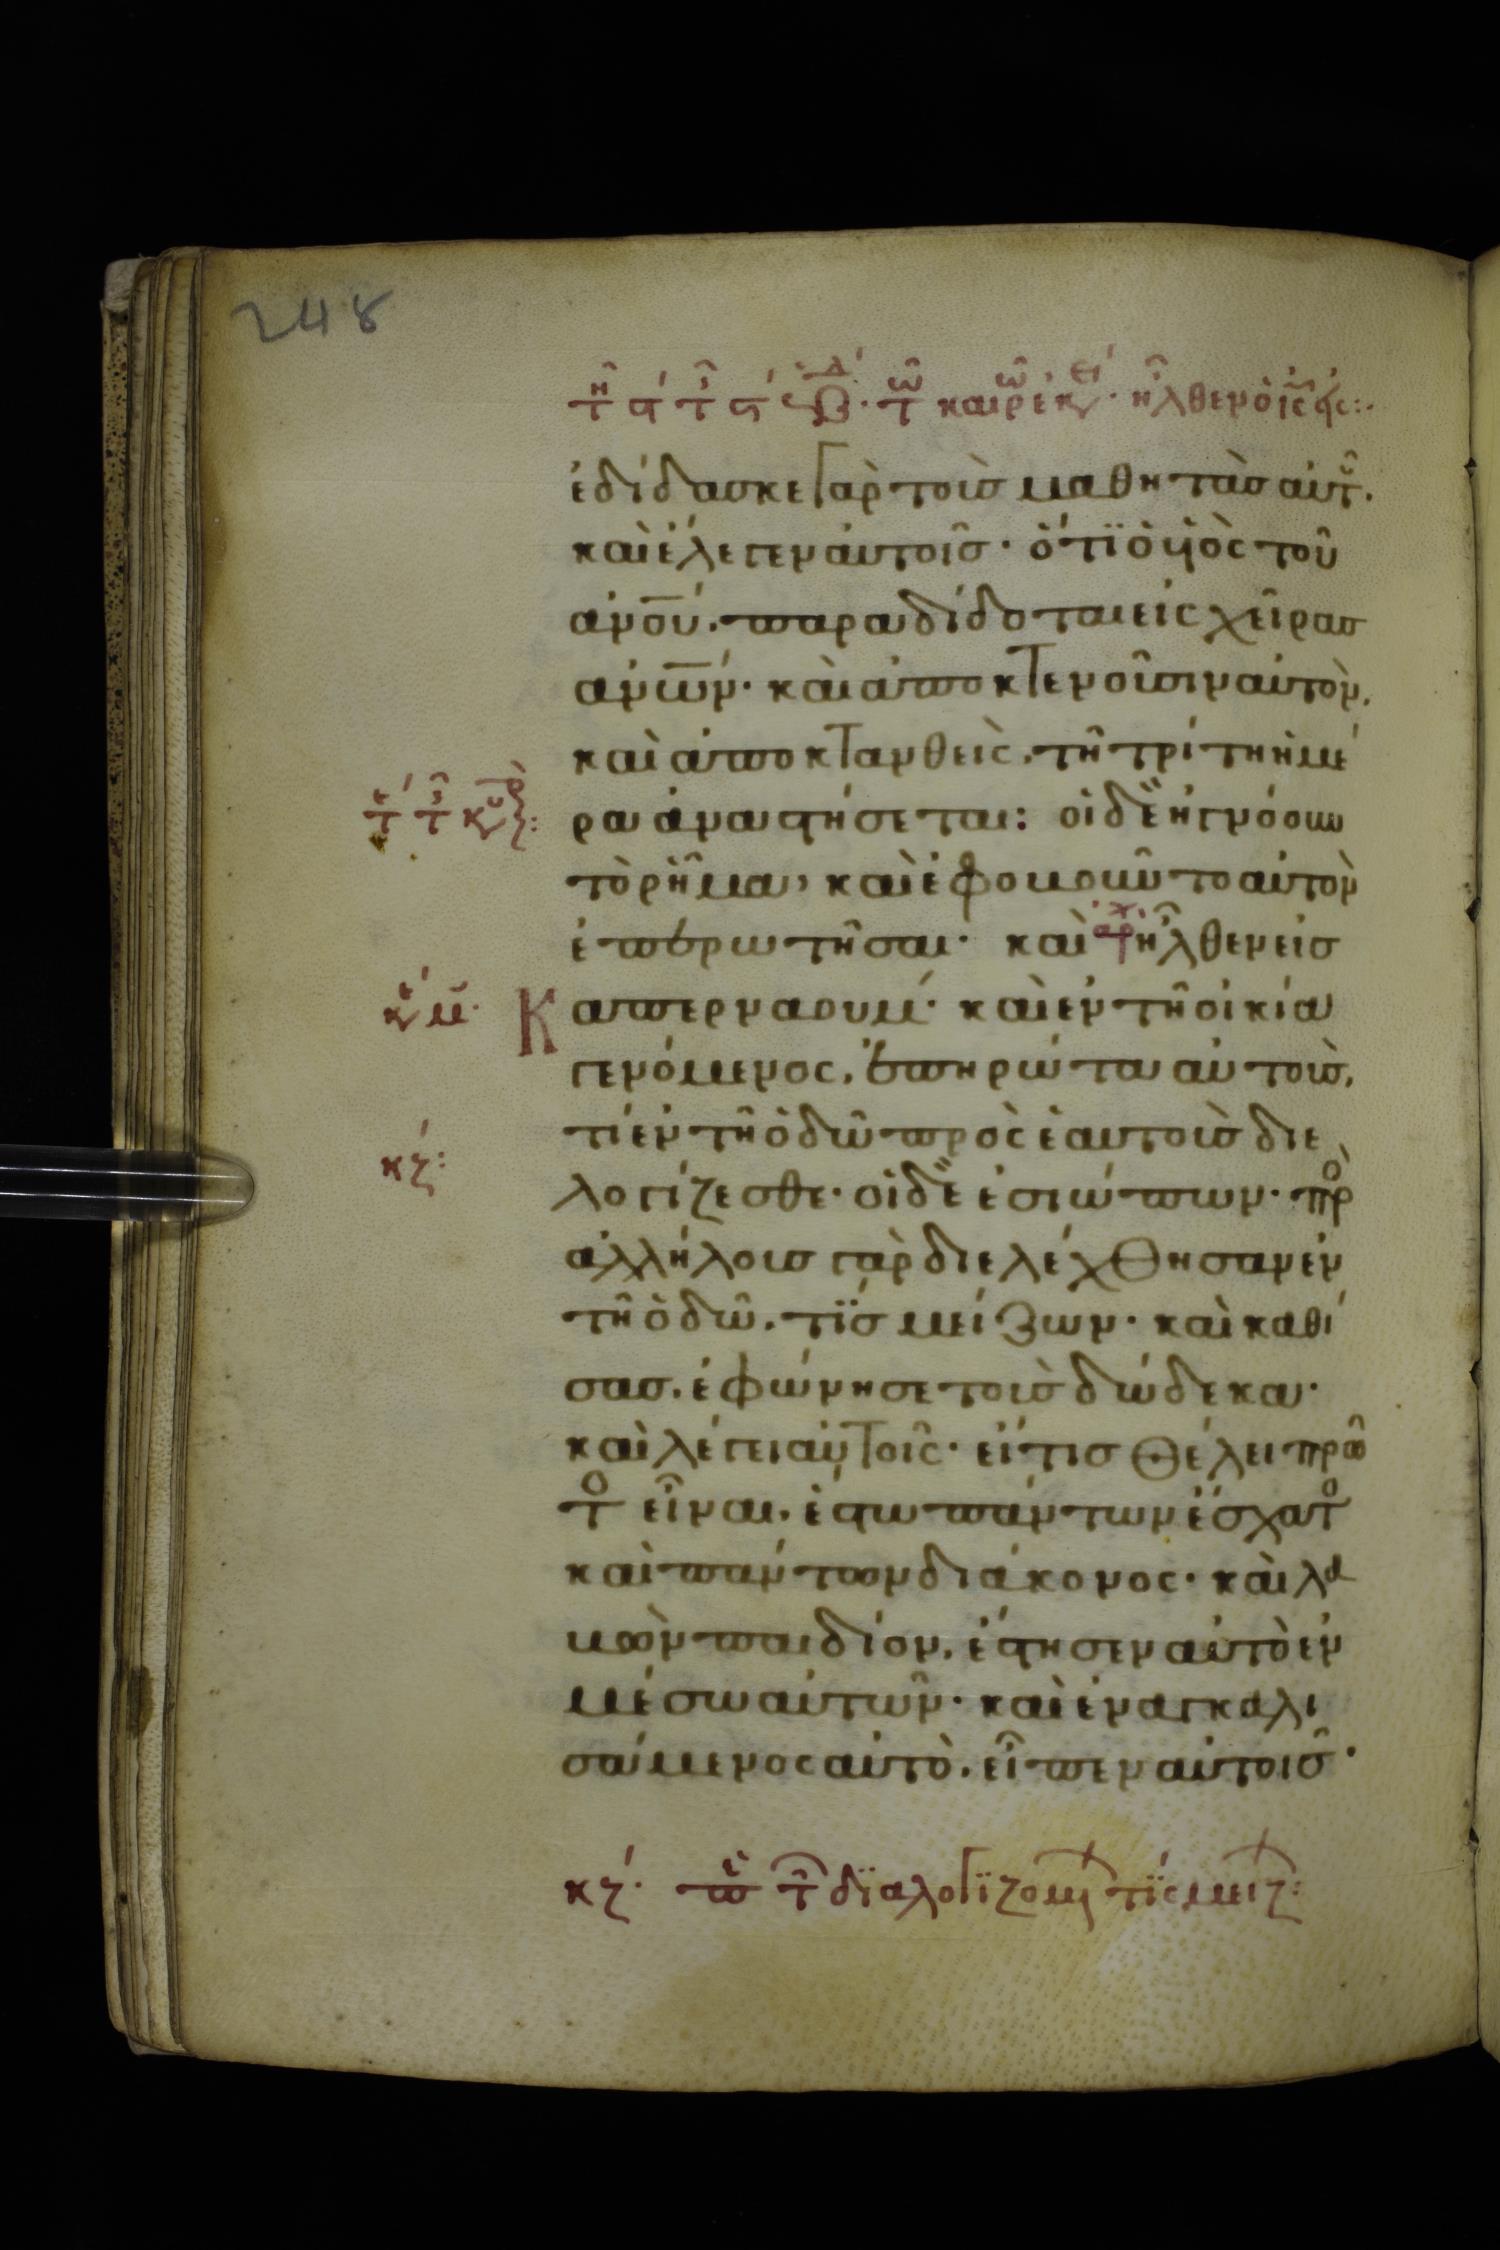 248
ἐδίδασκε γὰρ τοὺς μαθητὰς αὐτ̑.
καὶ ἔλεγεν αὐτοῖς· ὅτϊ ὁ ὑϊὸς τοῦ
ἀνου. παραδίδοται εἰς χεῖρας
ἀνων· καὶ ἀποκτενοῦσιν αὐτὸν.
καὶ ἀποκτανθεὶς, τῆ τρίτη ἡμέ
ρα ἀναστήσεται: οἱ δὲ ἠγνόουν
τὸ ρῆμα, καὶ ἐφοβοῦντο αὐτὸν
ἐπερωτῆσαι· καὶ ἦλθεν εἰς
Καπερναούμ· καὶ ἐν τῆ οἰκία
γενόμενος, ἐπηρώτα αὐτοὺς,
τί ἐν τῆ ὁδῶ πρὸς ἑαυτοὺς διε
λογίζεσθε· οἱ δὲ ἐσιώπων· πρὸ
ἀλλήλους γὰρ διελέχθησαν ἐν
τῆ ὁδῶ. τϊς μείζων· καὶ καθί
σας. ἐφώνησε τοὺς δώδεκα·
καὶ λέγει αὐτοῖς· εἴ τις θέλει πρῶ
το εἶναι, ἔσται πάντων ἔσχατο
καὶ πάντων διάκονος· καὶ λα
βὼν παιδίον, ἔστησεν αὐτὸ ἐν
μέσω αὐτῶν· καὶ ἐναγκαλι
σάμενος αὐτὸ. εἶπεν αὐτοῖς·
κζ· π τ̑ διαλογϊζομ τίς μειζ: